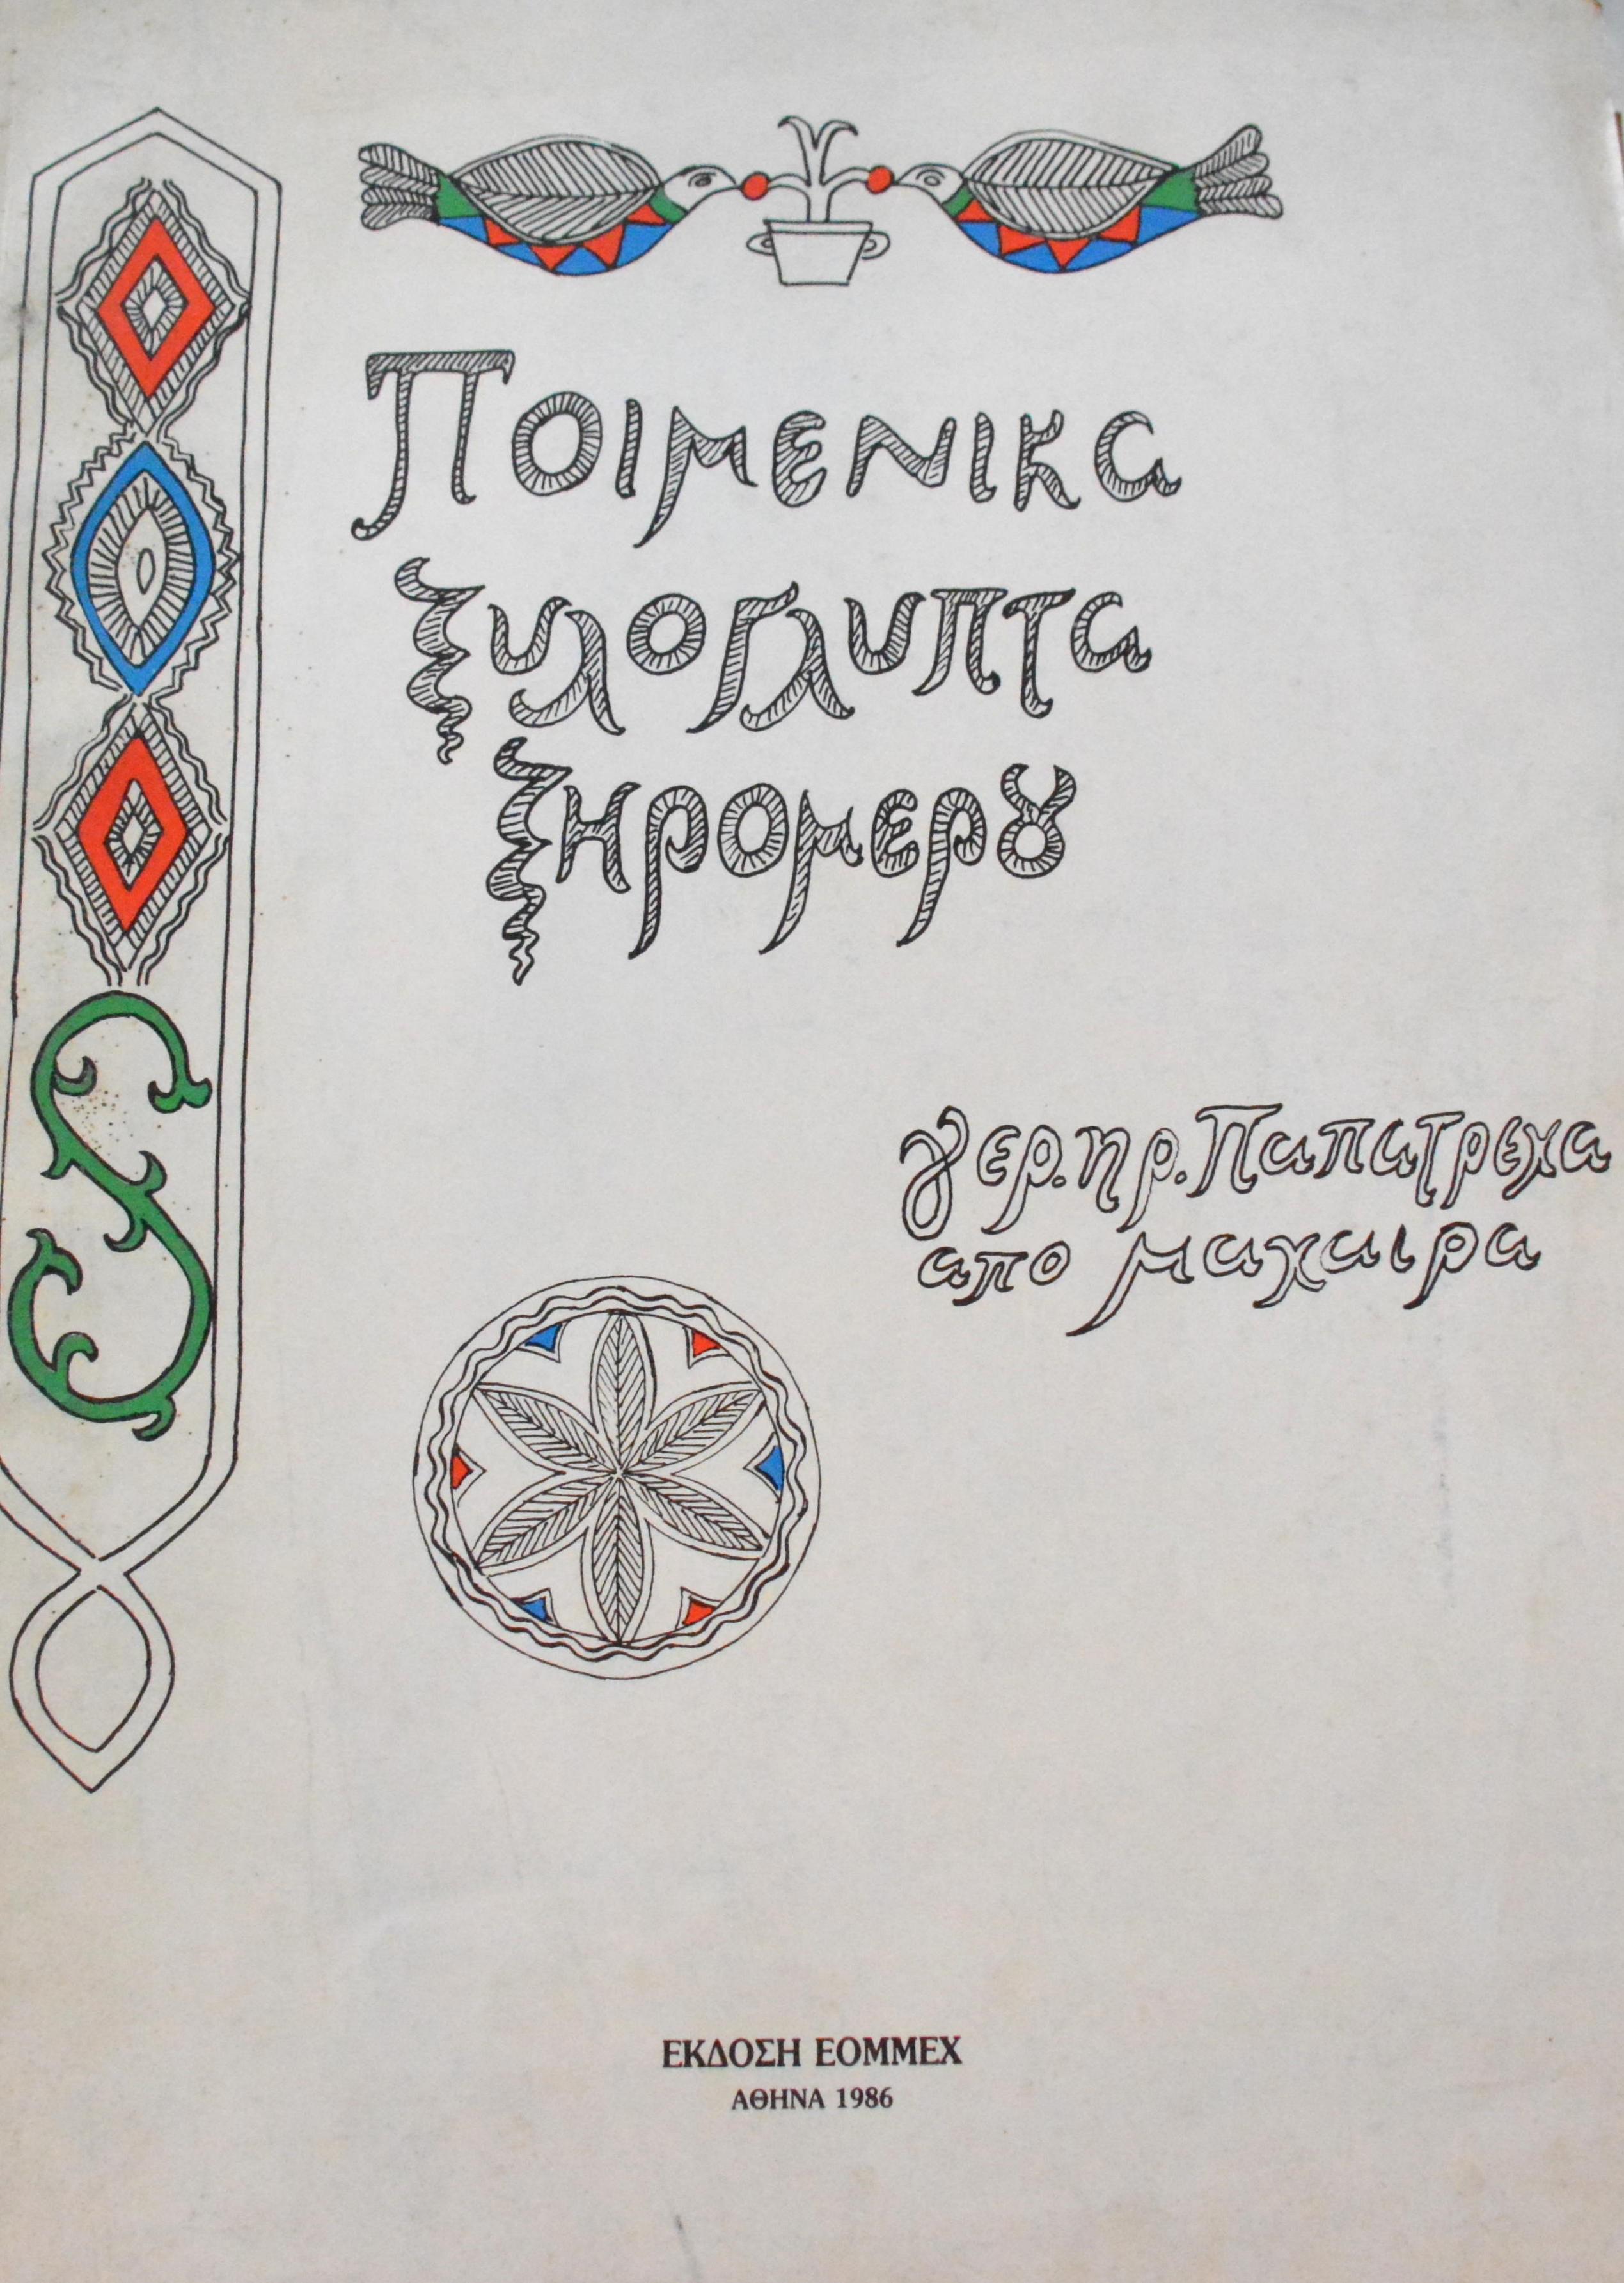 Ποιμενικα
ξυλογλυπτα
ξηρομερȣ
γερ. ηρ. Παπατρεχα
απο μαχαιρα
ΕΚΔΟΣΗ ΕΟΜΜΕΧ
ΑΘΗΝΑ 1986